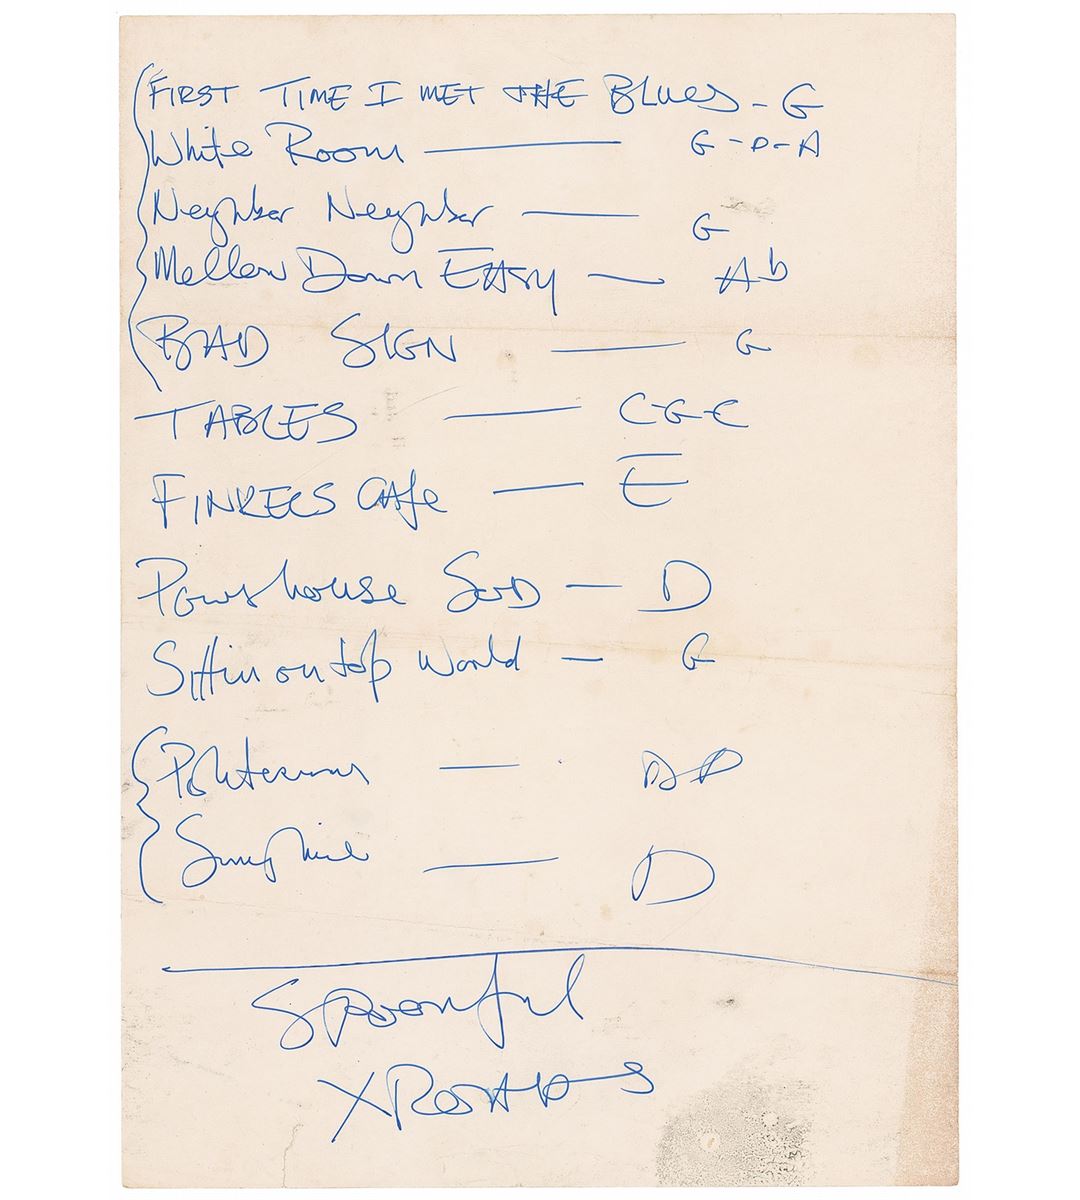 FIRST TIME I MET THE BLUES - G
White Room — G-D-A
Neighbor Neighbor — G
Mellow Down EASY — Ab
BAD SIGN — G
TABLES — C-G-C
FINKELS CAfe — E
Powrhouse SOD — D
Sittin on top World — G
Politician — D
Sunshine — D
Spoonful
XROADS